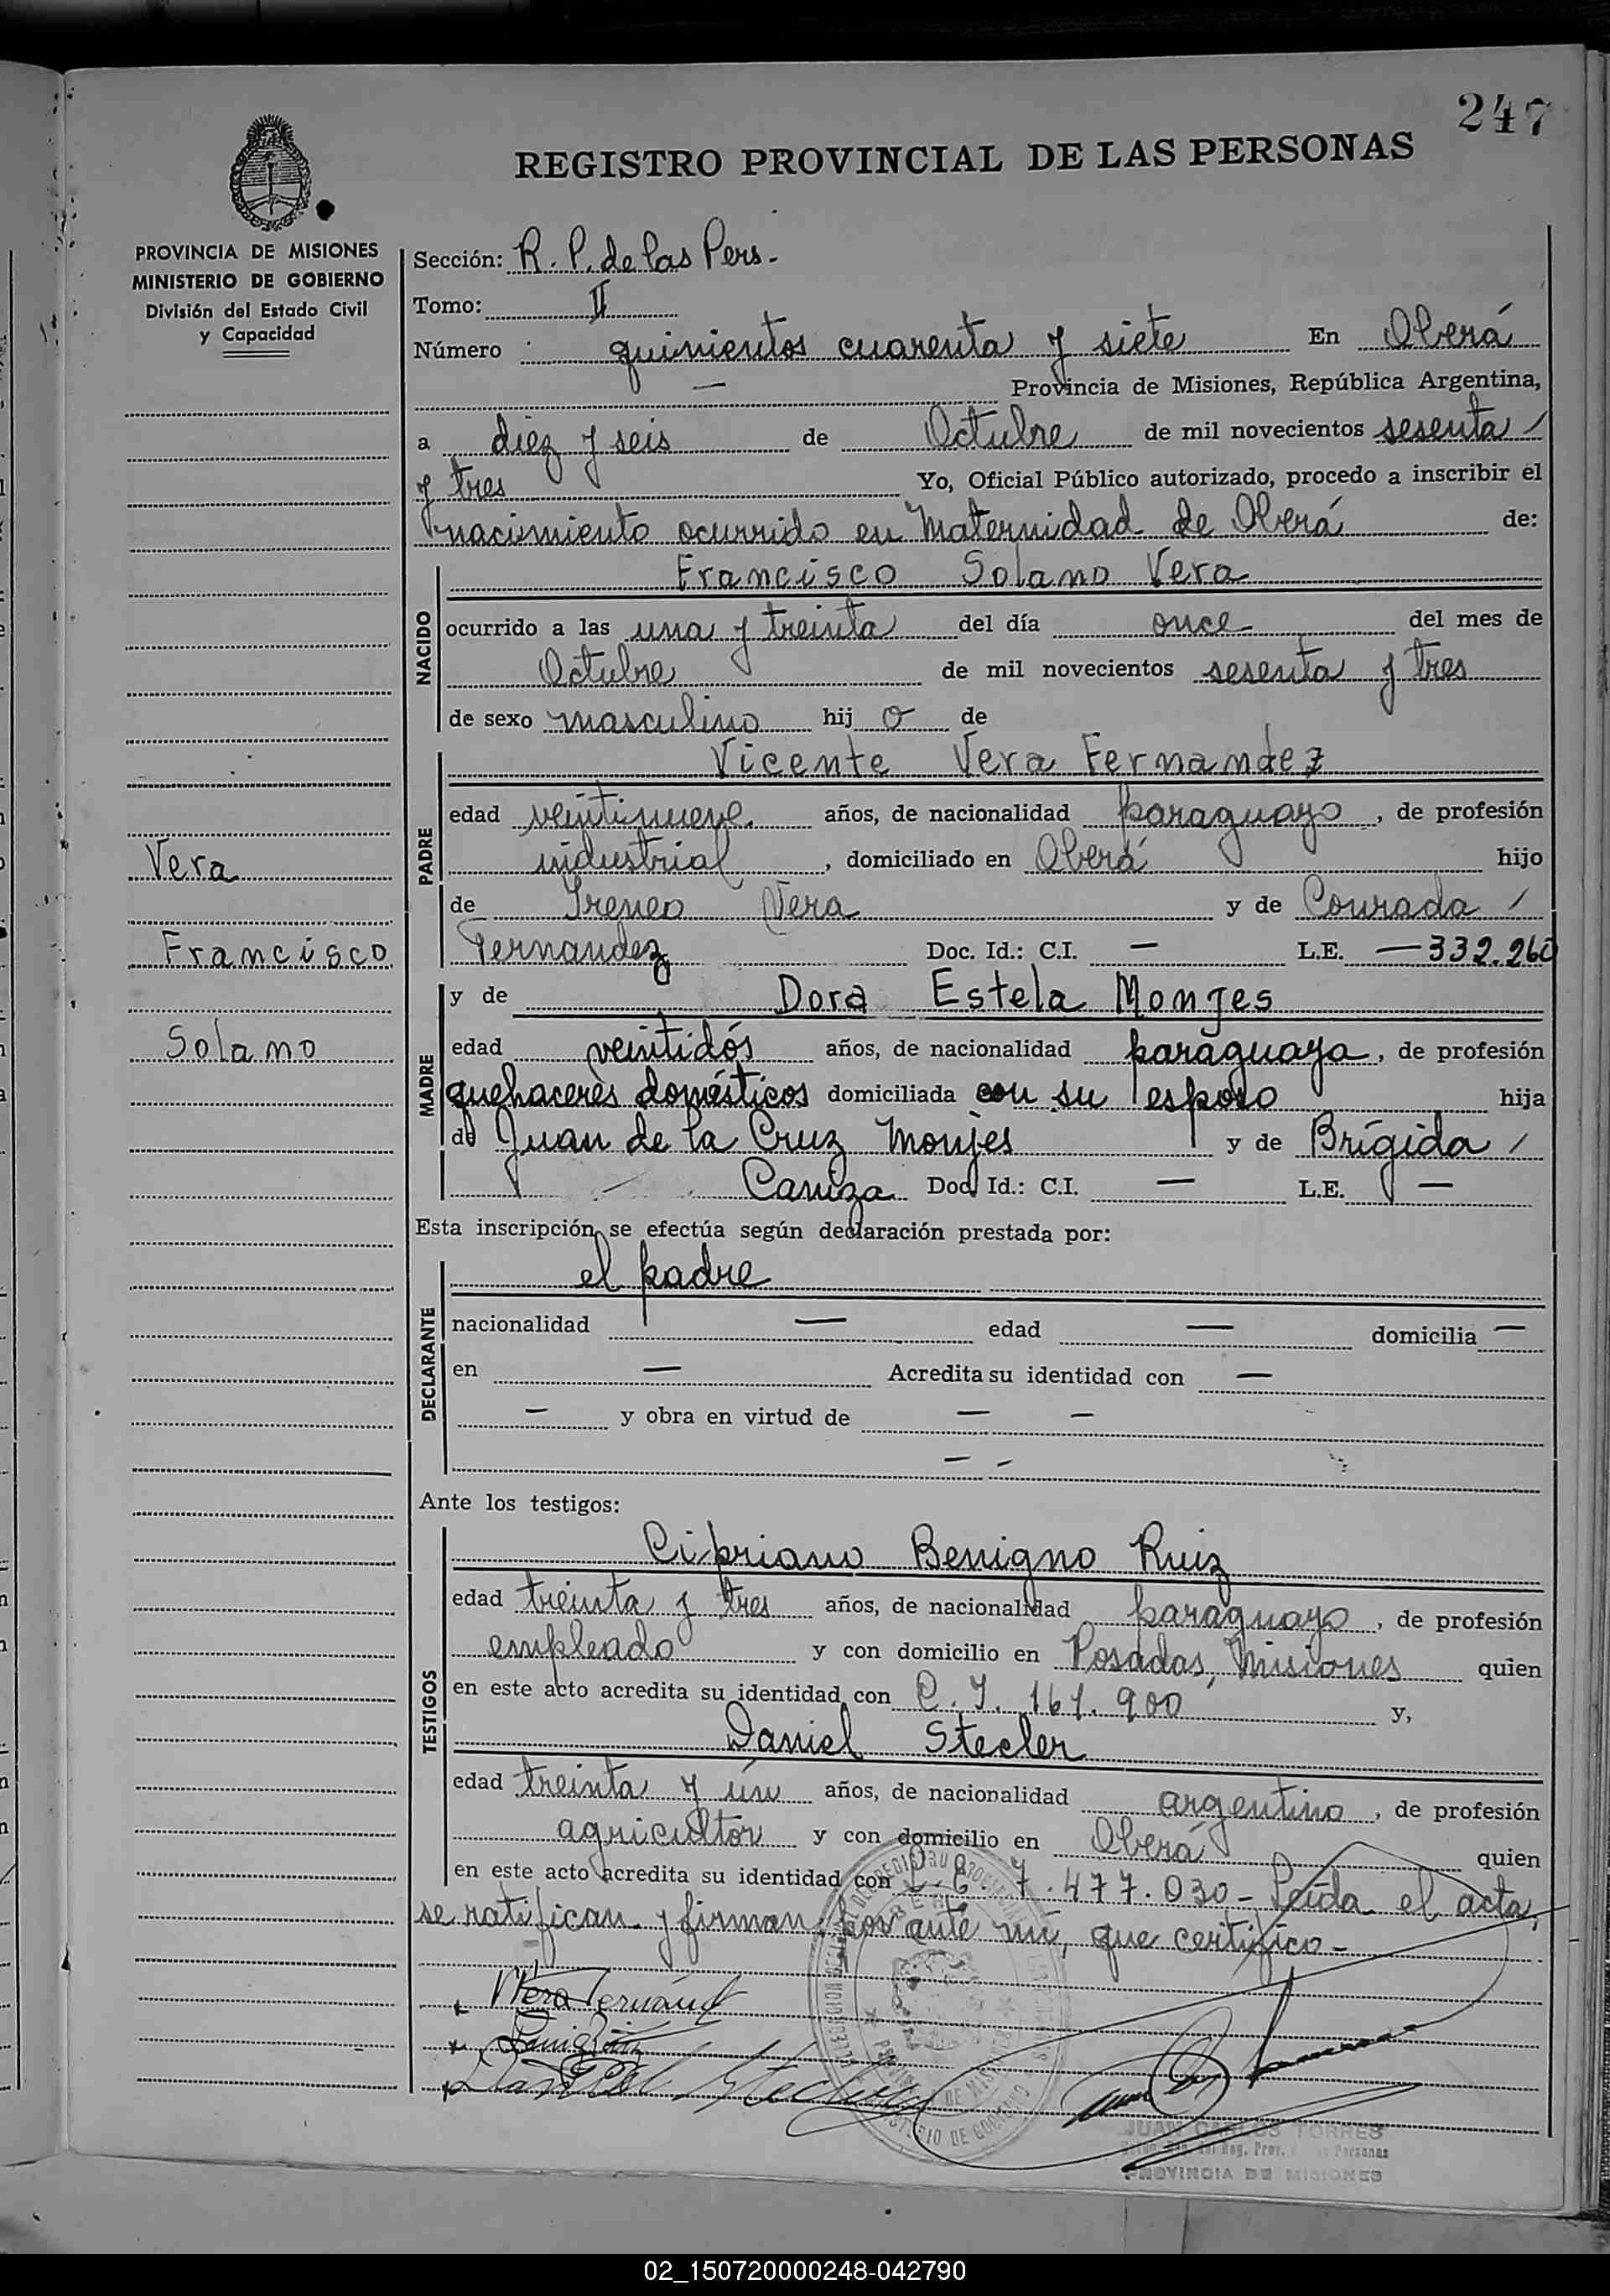 247
REGISTRO PROVINCIAL DE LAS PERSONAS
PROVINCIA DE MISIONES
MINISTERIO DE GOBIERNO
División del Estado Civil
y Capacidad
Vera
Francisco
Solano
Sección: R. P. de las Pers.
Tomo: II
Número quinientos cuarenta y siete En Oberá
— Provincia de Misiones, República Argentina,
a diez y seis de Octubre de mil novecientos sesenta /
y tres Yo, Oficial Público autorizado, procedo a inscribir el
nacimiento ocurrido en Maternidad de Oberá de:
NACIDO
Francisco Solano Vera
ocurrido a las una y treinta del día once del mes de
Octubre de mil novecientos sesenta y tres
de sexo masculino hij o de
PADRE
Vicente Vera Fernandez
edad veintinueve años, de nacionalidad paraguayo, de profesión
industrial, domiciliado en Oberá hijo
de Ireneo Vera y de Conrada /
Fernandez Doc. Id.: C.I. — L.E. — 332.260
MADRE
y de Dora Estela Monjes
edad veintidós años, de nacionalidad paraguaya, de profesión
quehaceres domésticos domiciliada con su esposo hija
de Juan de la Cruz Monjes y de Brígida /
Caniza Doc. Id.: C.I. — L.E. —
Esta inscripción se efectúa según declaración prestada por:
DECLARANTE
el padre
nacionalidad — edad — domicilia —
en — Acredita su identidad con —
— y obra en virtud de — —
— —
Ante los testigos:
TESTIGOS
Cipriano Benigno Ruiz
edad treinta y tres años, de nacionalidad paraguayo, de profesión
empleado y con domicilio en Posadas, Misiones quien
en este acto acredita su identidad con C.I. 161.900 y,
Daniel Stecler
edad treinta y ún años, de nacionalidad argentino, de profesión
agricultor y con domicilio en Oberá quien
en este acto acredita su identidad con L.E. 7.477.030 - Leída el acta,
se ratifican y firman por ante mí, que certifico -
Vera Fernández
Daniel Stecler
JUAN CARLOS TORRES
Reg. Prov. Personas
PROVINCIA DE MISIONES
02_150720000248-042790